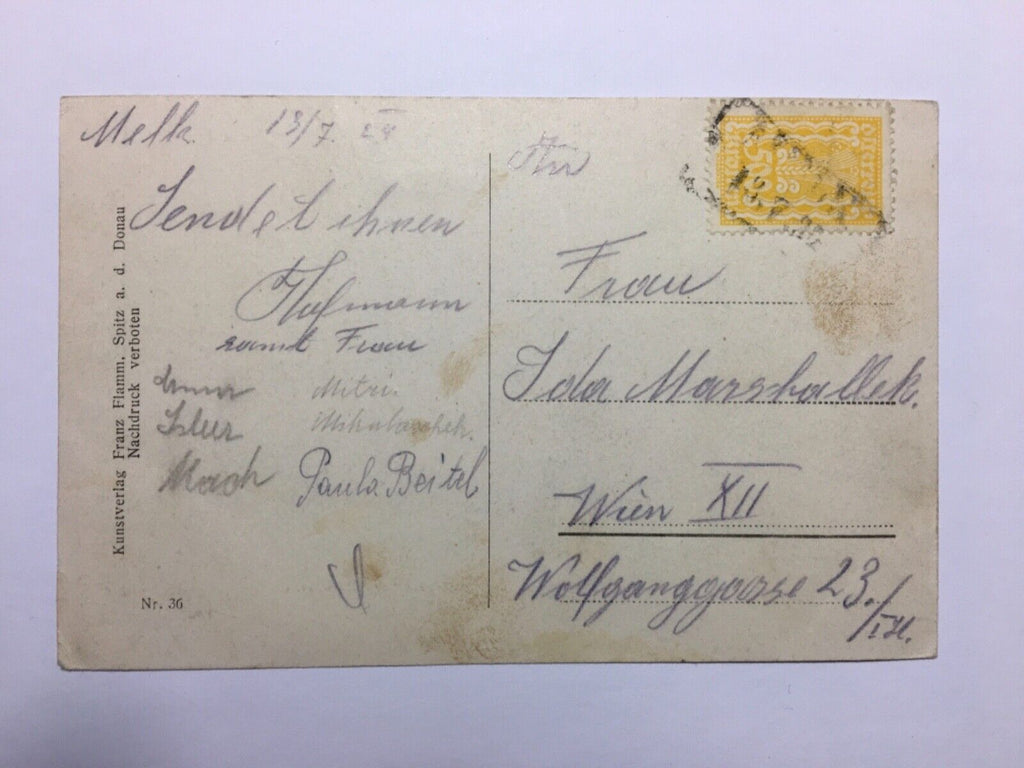 Melk 13/7. 24
Sendet ihnen
Hofmann
samt Frau
Anna Mitzi.
Isler
Mach Paula Beitel
Kunstverlag Franz Flamm, Spitz a. d. Donau
Nachdruck verboten
Nr. 36
Frau
Ida Marschallek.
Wien XII
Wolfganggasse 23./